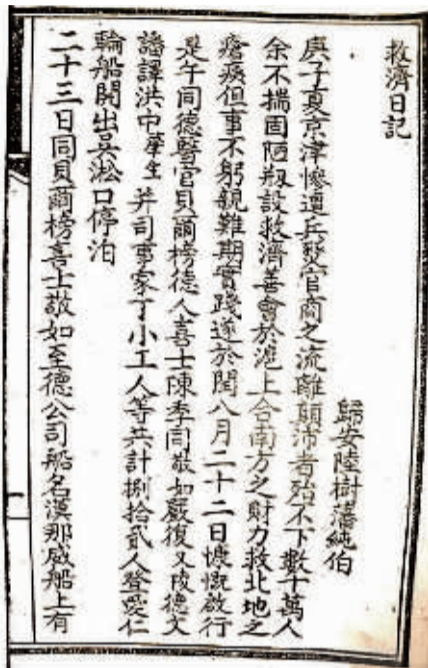 救濟日記
歸安陸樹藩純伯
庚子夏京津慘遭兵燹官商之流離顛沛者殆不下數十萬人
余不揣固陋剏設救濟善會於滬上合南方之財力救北地之
瘡痍但事不躬親難期實踐遂於閏八月二十二日慷慨啟行
是午同德醫官貝爾榜德人喜士陳季同敬如嚴復又陵德文
譒譯洪中肇生并司事家丁小工人等共計捌拾貳人登愛仁
輪船開出吳淞口停泊
二十三日同貝爾榜喜士敬如至德公司船名漢那威船上有